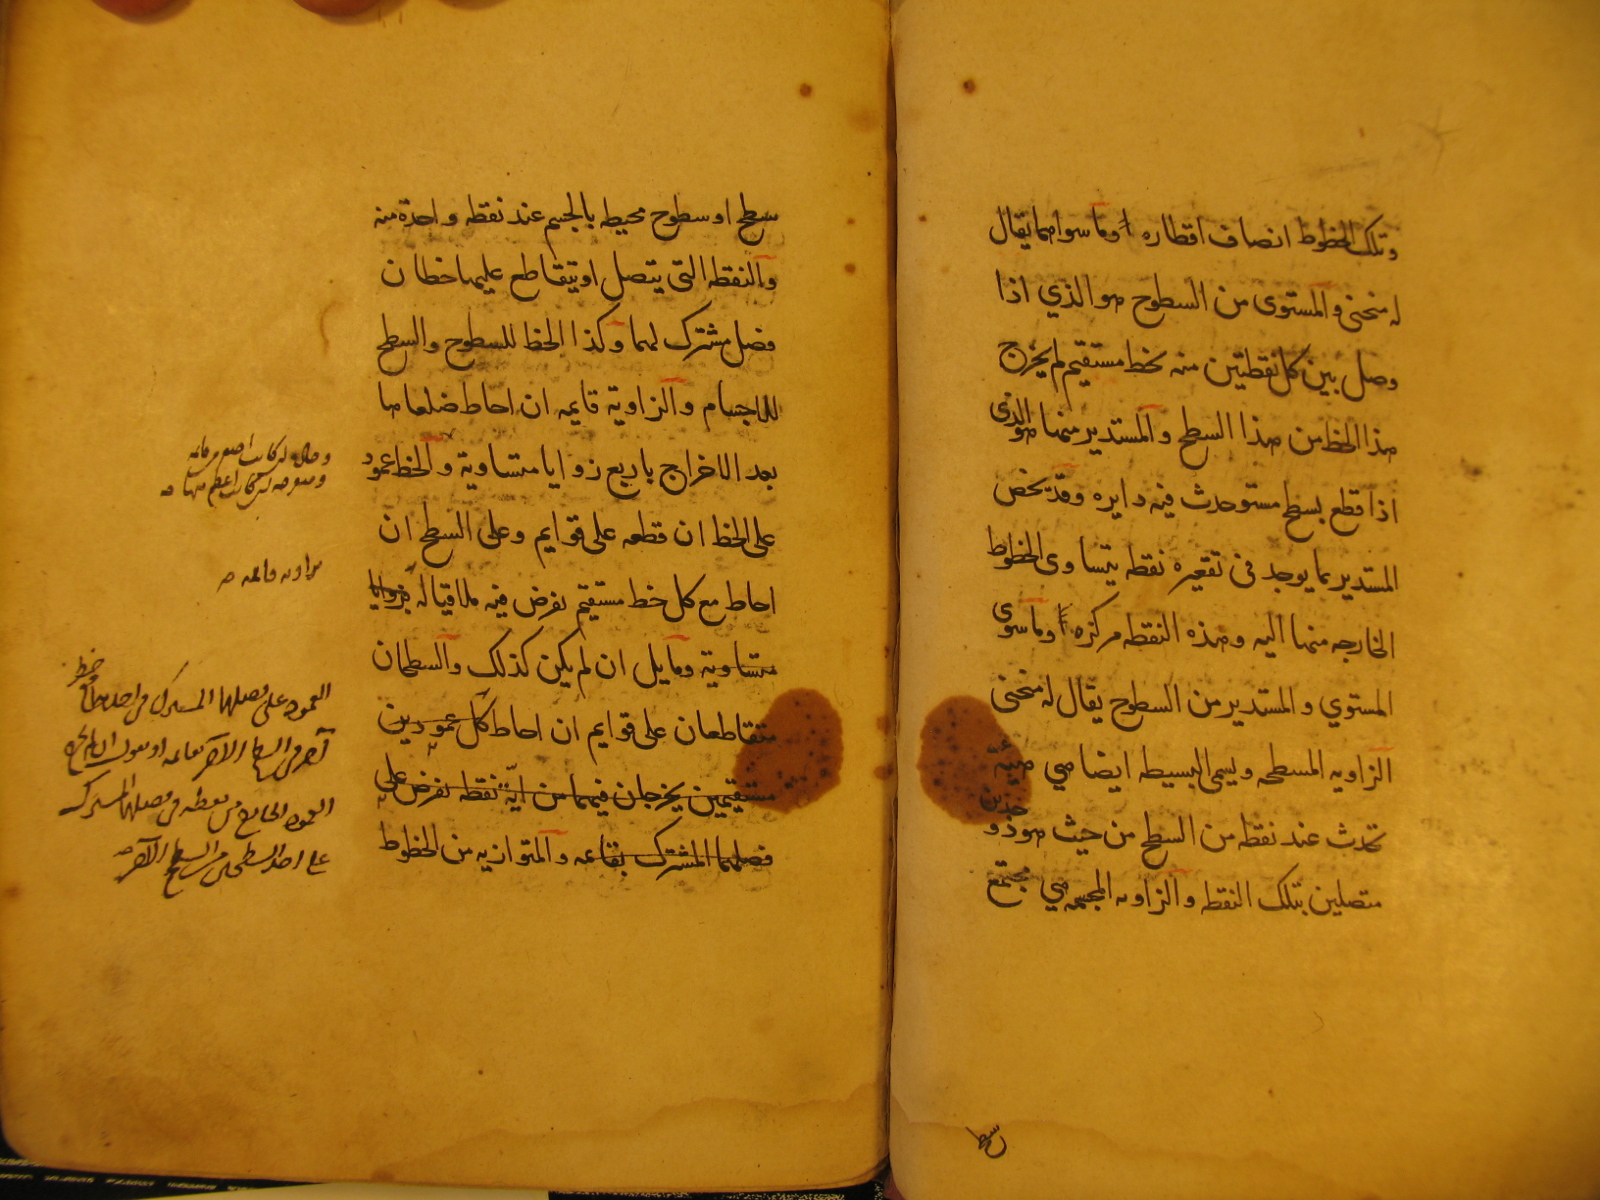 وتلك الخطوط انصاف اقطاره وما سواهما يقال
له منحنى والمستوى من السطوح هو الذي اذا
وصل بين كل نقطتين منه بخط مستقيم لم يخرج
هذا الخط من هذا السطح والمستدير منها هو الذى
اذا قطع بسطح مستو حدث فيه دايره وقد يخص
المستدير بما يوجد فى تقعيره نقطه يتساوى الخطوط
الخارجه منها اليه وهذه النقطه مركزه وما سوى
المستوي والمستدير من السطوح يقال له منحنى
الزاويه المسطحه ويسمى البسيطه ايضا هي هيئة
تحدث عند نقطه من السطح من حيث هو ذو حدين
متصلين بتلك النقطه والزاويه المجسمه هي مجتمع
سطح
سطح او سطوح محيطه بالجسم عند نقطه واحدة منه
والنقطه التى يتصل او يتقاطع عليها خطان
فصل مشترك لهما وكذا الخط للسطوح والسطح
للاجسام والزاوية قايمه ان احاط ضلعاها
بعد الاخراج باربع زوايا متساوية والخط عمود
على الخط ان قطعه على قوايم وعلى السطح ان
احاط مع كل خط مستقيم يفرض فيه ملاقيا له بزوايا
متساوية ومايل ان لم يكن كذلك والسطحان
متقاطعان على قوايم ان احاط كل عمودين
مستقيمين يخرجان فيهما من اية نقطه تفرض على
فصلهما المشترك بقايمه والمتوازيه من الخطوط
وحاده ان كانت اصغر من قايمه
ومنفرجه ان كانت اعظم منها صه
بزاويه قايمه صه
العمود على فصلهما المشترك فى احدهما
العمود الخارج من نقطه فى فصلهما المشترك
على احد السطحين السطح الاخر صه